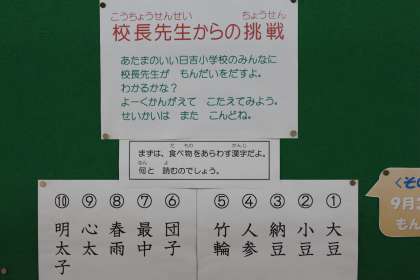 こうちょうせんせい ちょうせん
校長先生からの挑戦
あたまのいい日吉小学校のみんなに
校長先生が もんだいをだすよ。
わかるかな?
よーくかんがえて こたえてみよう。
せいかいは また こんどね。
た もの かんじ
まずは、食べ物をあらわす漢字だよ。
なん よ
何と 読むのでしょう。
① 大豆
② 小豆
③ 納豆
④ 人参
⑤ 竹輪
⑥ 団子
⑦ 最中
⑧ 春雨
⑨ 心太
⑩ 明太子
<その
9月
もん